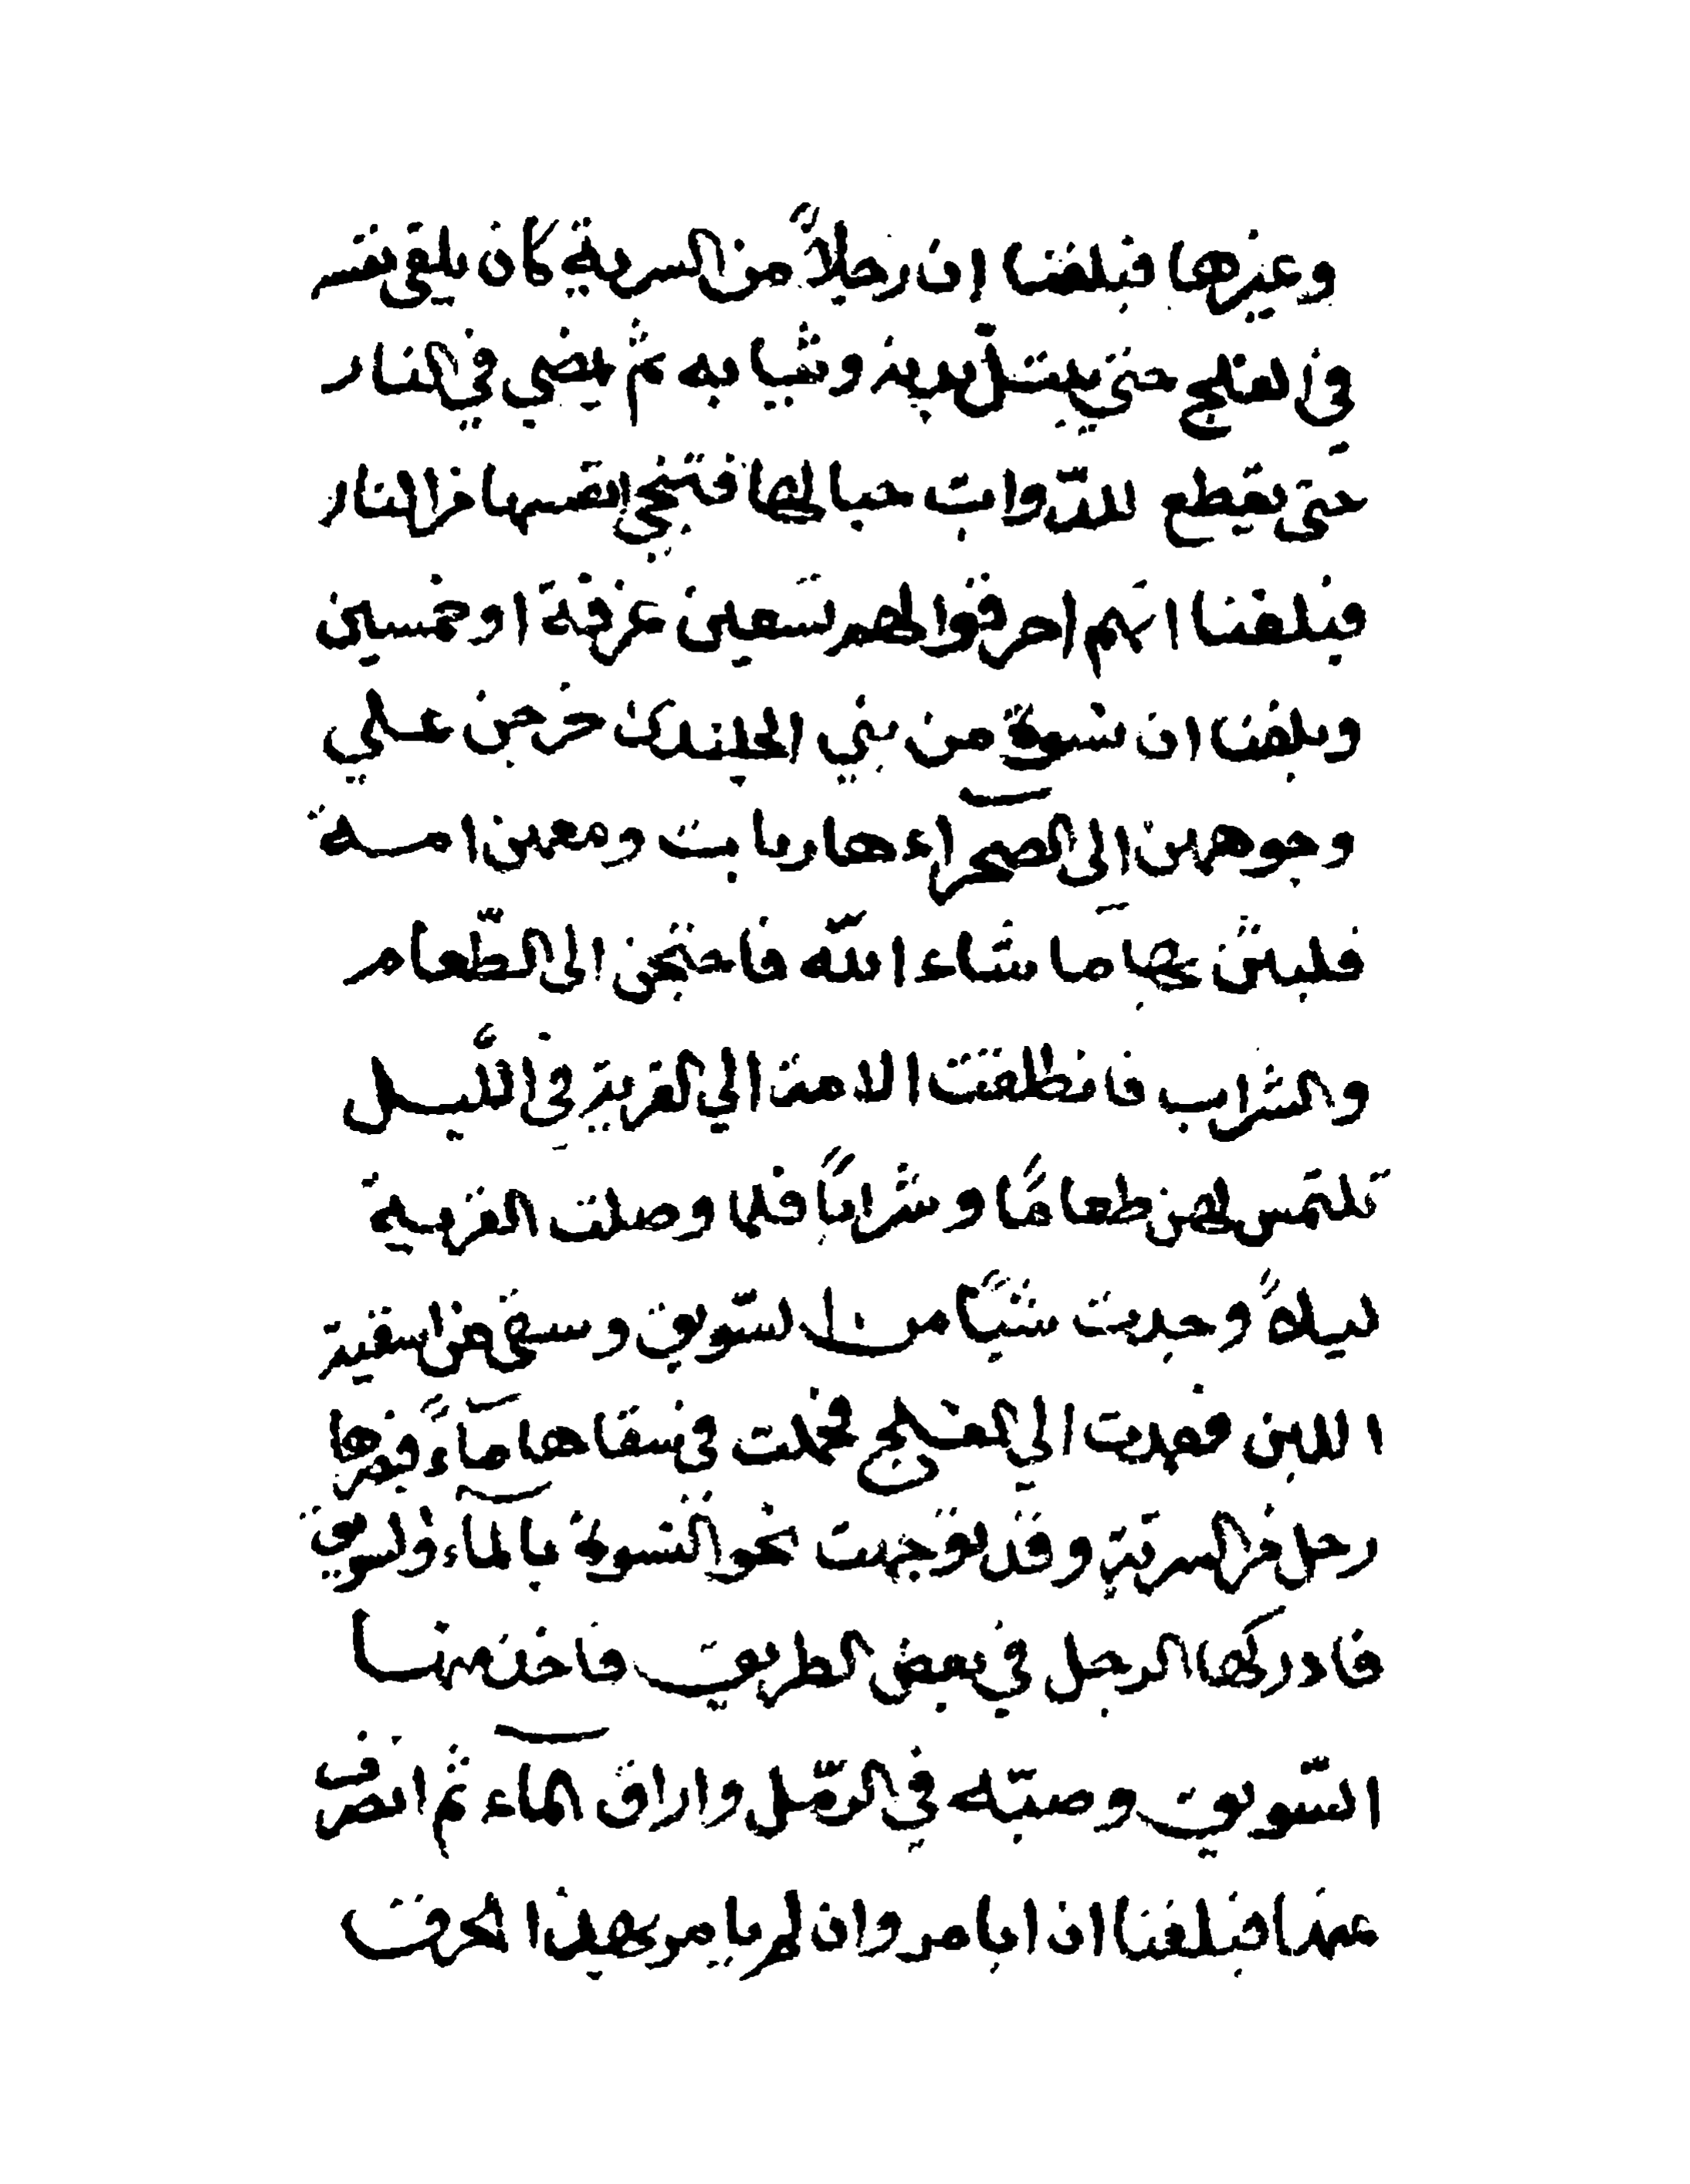 وغيرها فبلغنا إن رجلاً من السرية كان يلقى نفسه
في الفلج حتى يبتلّ بدنه وثيابه ثم يمضي في النار
حتى يقطع للدّواب حبالها فتنجي انفسها من النار
فبلغنا انهم احرقوا لهم سبعين غرفة او خمسين
وبلغنا ان نسوة من بني الجلندى خرجن على
وجوههن الى الصحراء هاربات ومعهن امة
فلبثن بها ما شاء الله فاحتجن الى الطّعام
والشراب فانطلقت الامة الي القرية في اللّيل
تلتمس لهن طعامًا وشرابًا فلما وصلت القرية
ليلاً وجدت شيًا من السّويق وسقى من اسقية
اللبن فعمدت الي الفلج فحملت في سقاها ماءً فبصرها
رجل من السريّة وقد توجهت نحو النسوة بالماء والسويق
فادركها الرجل في بعض الطريق فاخذ منها
السّويق وصبّه في الرّمل واراق الماء ثم انصرف
عنها فبلغنا ان ابا مروان لم يامر بهذا الحرق